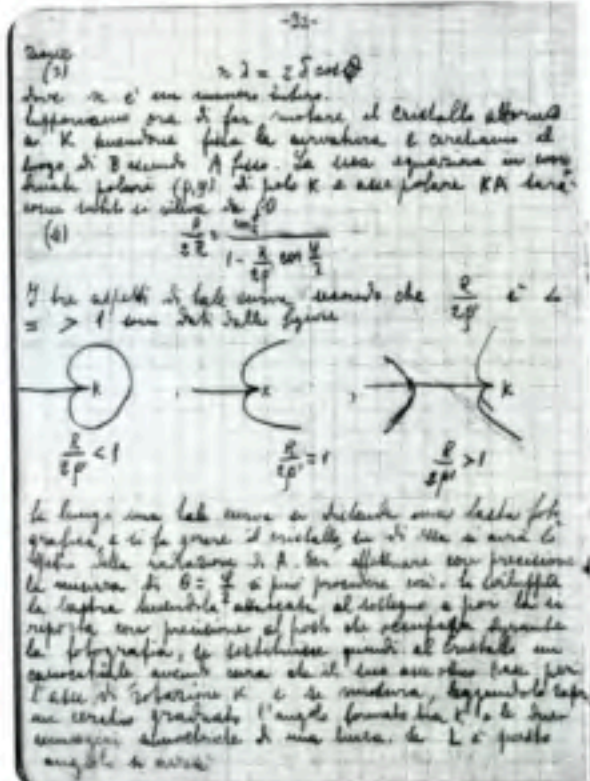 -32-
(3) n λ = 2 δ cos φ
dove n è un numero intero.
Supponiamo ora di far ruotare il cristallo attorno
a K tenendone fissa la curvatura e cerchiamo il
luogo di B essendo A fisso. La sua equazione in coor
dinate polari (ρ,φ) di polo K e asse polare KA sarà
come subito si
(4) = cos / 1 - R/2ρ' cos φ/2
I tre aspetti di tale curva, secondo che R/2ρ' è <
= > 1 sono dati dalle figure
K K K
R/2ρ' < 1 R/2ρ' = 1 R/2ρ' > 1
Se lungo una tale curva si distende una lastra foto
grafica, e si fa girare il cristallo, su di essa si avrà lo
spettro della radiazione di A. Per effettuare con precisione
la misura di θ = φ/2 si può procedere così. Si sviluppa
la lastra tenendola attaccata al sostegno e poi la si
riporta con precisione al posto che occupava durante
la fotografia, si sostituisce quindi al cristallo un
cannocchiale avendo cura che il suo asse passi per
l'asse di rotazione K e si misura, leggendolo sopra
un cerchio graduato l'angolo formato tra K e le due
immagini simmetriche di una linea. Se L è questo
angolo si avrà